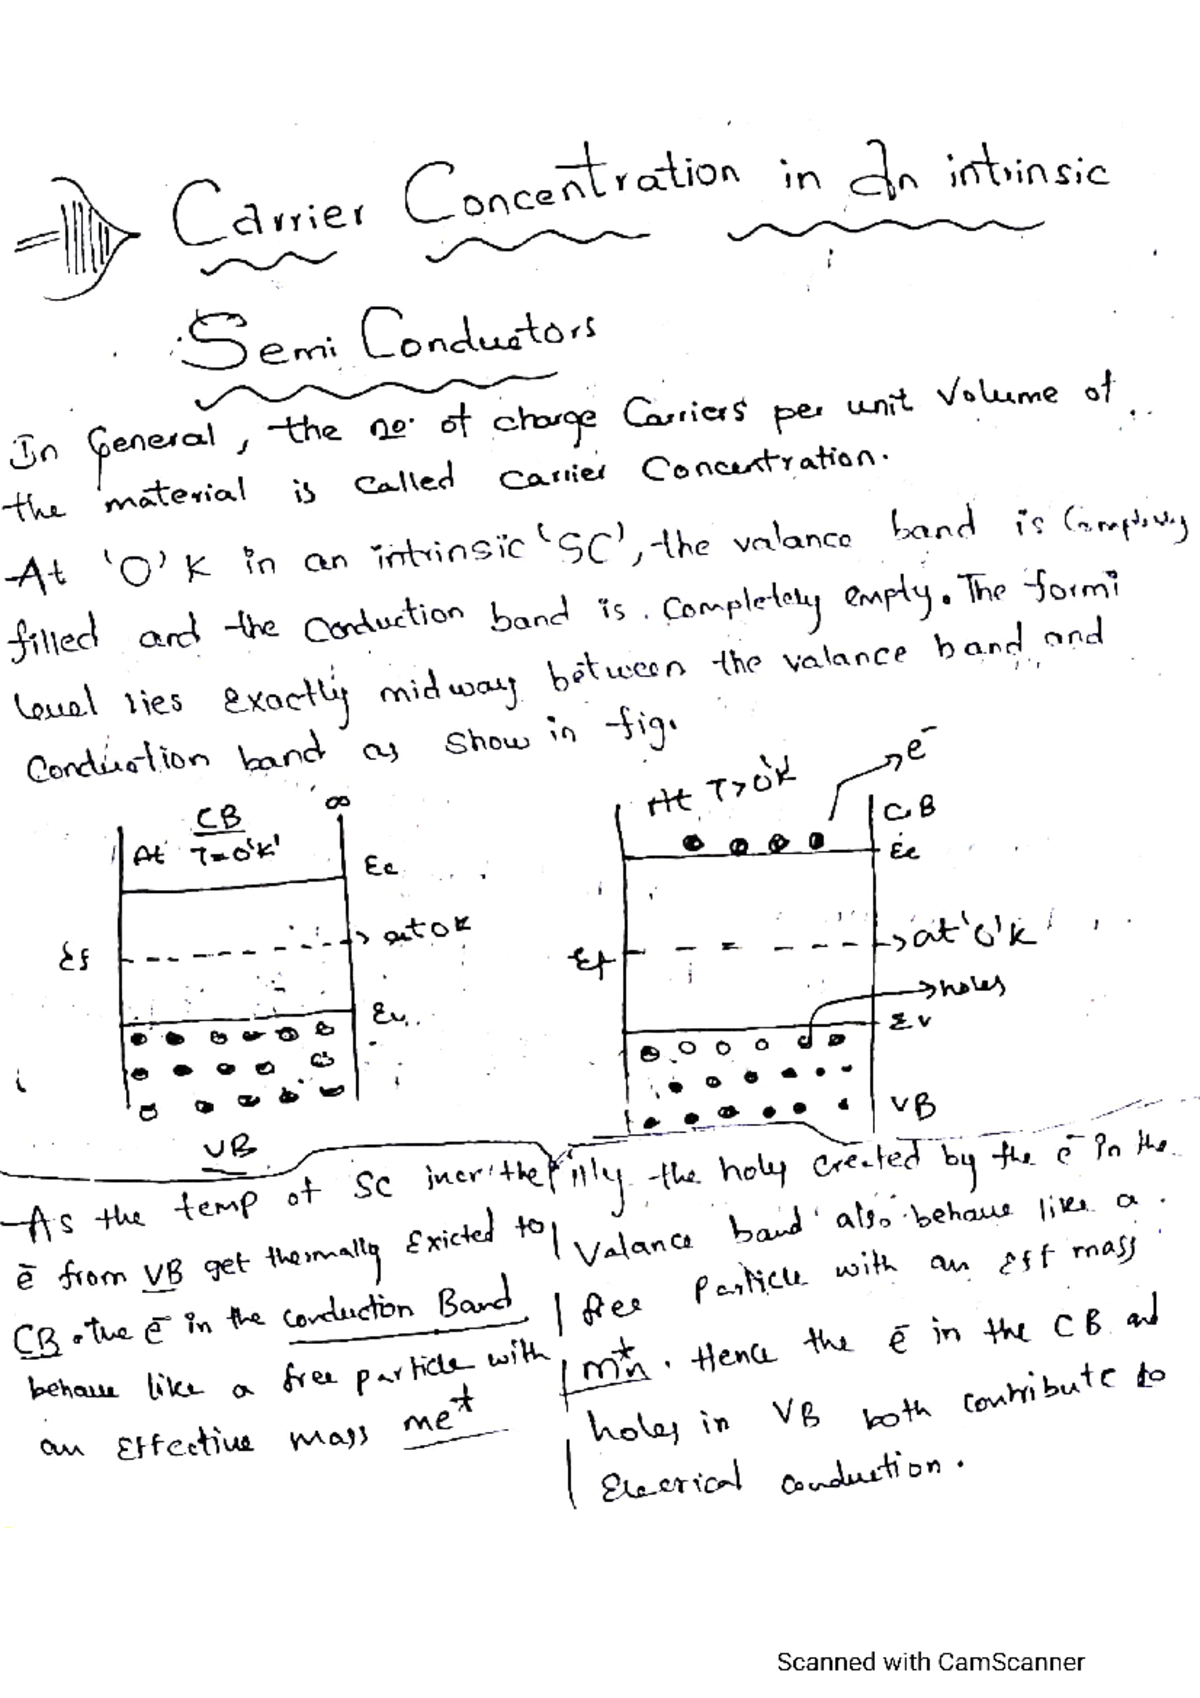 Carrier Concentration in An intrinsic
Semi Conductors
In General, the no. of charge Carriers per unit Volume of
the material is called carrier Concentration.
At 'O' K in an intrinsic 'SC', the valance band is
filled and the conduction band is. Completely empty. The formi
level lies exactly midway between the valance band and
Conduction band as show in fig.
CB
At T=0'K'
∞
Ec
Ef
at 0K
Ev
VB
At T>0'K
e⁻
C.B
Ec
Ef
at '0'K
holes
Ev
VB
As the temp of SC incr the
ē from VB get thermally Exicted to
CB. the ē in the conduction Band
behave like a free particle with
an Effective mass me*
111ly the holy created by the ē in the
Valance band also behave like a
free Particle with an Eff mass
m*n. Hence the ē in the CB and
holes in VB both contribute to
Elecrical conduction.
Scanned with CamScanner